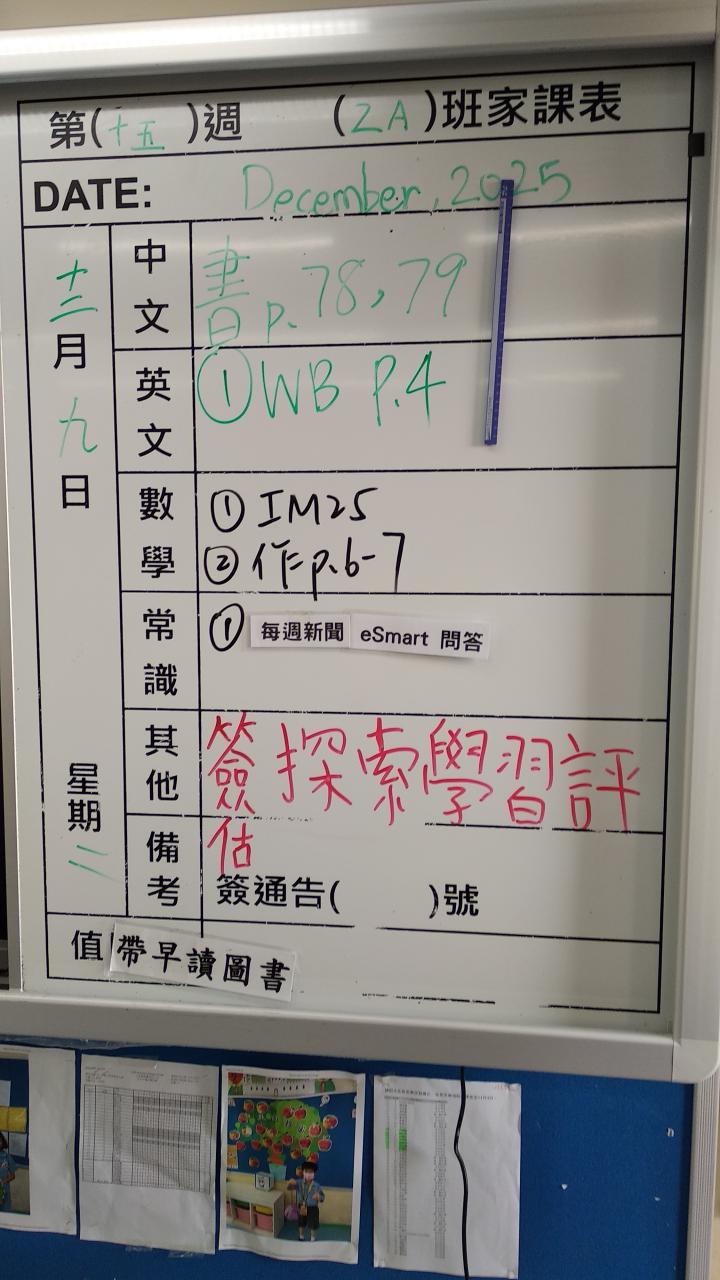 第(十五)週 (2A)班家課表
DATE: December, 2025
十二月九日 星期二
中文 書p.78,79
英文 ①WB P.4
數學 ①IM25
②作p.6-7
常識 ① 每週新聞 eSmart 問答
其他 簽探索學習評
估
備考 簽通告( )號
值 帶早讀圖書